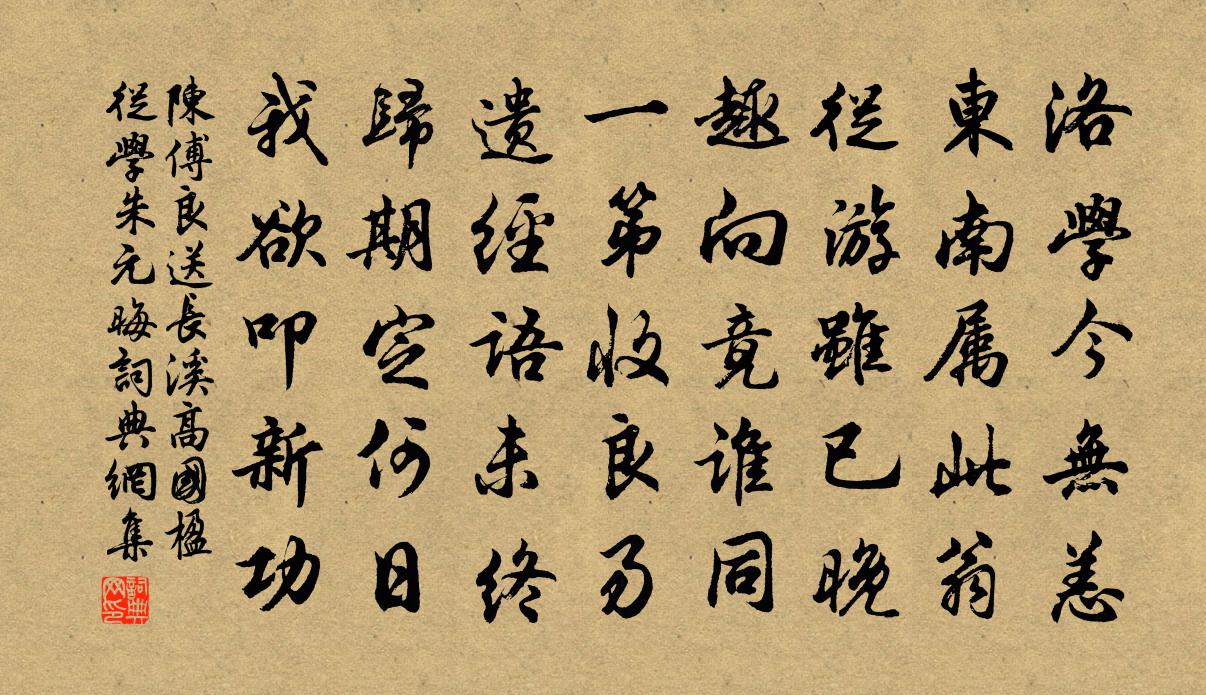 洛學今無恙
東南属此翁
從游雖已晚
趣向竟誰同
一第收良易
遺經語未終
歸期定何日
我欲叩新功
陳傅良送長溪高國楹
從學朱元晦詞典網集
詞典網印